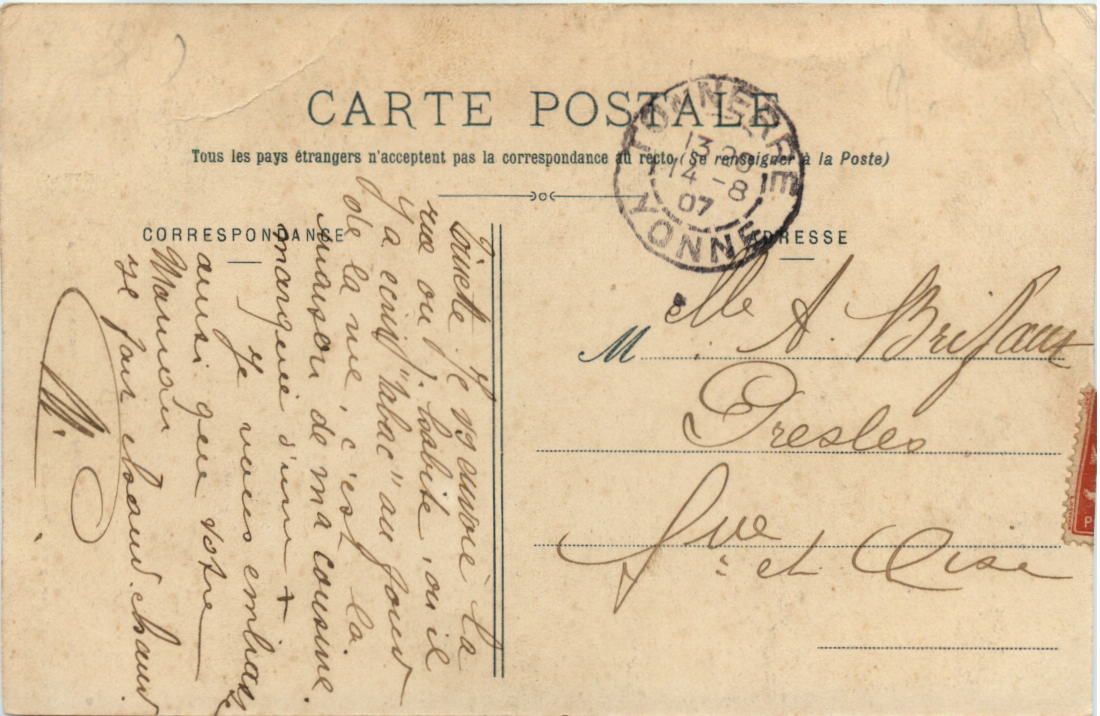 CARTE POSTALE
Tous les pays étrangers n'acceptent pas la correspondance au recto (Se renseigner à la Poste)
TONNERRE
13
14 - 8
07
YONNE
CORRESPONDANCE
ADRESSE
Je envoie la
rue ou j. habite, ou il
y a ecrit "tabac" au fond
de la rue, c'est la
maison de ma cousine.
marquée d'une +
Je vous embras
ainsi que votre
Maman
M.
M elle A. Brifaux
Presles
S. et Oise